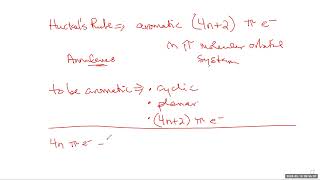 Huckel's Rule ⇒ aromatic (4n+2) π e⁻
Annulenes in π molecular orbital
system
to be aromatic ⇒ • cyclic
• planar
• (4n+2) π e⁻
4n π e⁻ –